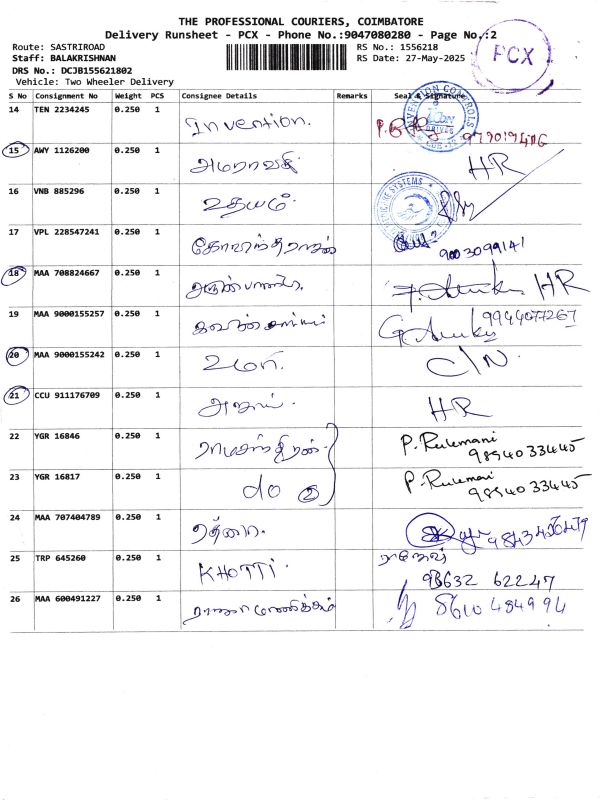 THE PROFESSIONAL COURIERS, COIMBATORE
Delivery Runsheet - PCX - Phone No.:9047080280 - Page No.:2
Route: SASTRIROAD
RS No.: 1556218
Staff: BALAKRISHNAN
RS Date: 27-May-2025
DRS No.: DCJB155621802
Vehicle: Two Wheeler Delivery
PCX
S No Consignment No Weight PCS Consignee Details Remarks Seal & Signature
14 TEN 2234245 0.250 1 Invention.
15 AWY 1126200 0.250 1 அமராவதி HR
16 VNB 885296 0.250 1 உதயம்.
17 VPL 228547241 0.250 1 கோவிந்தராஜன் 9003099141
18 MAA 708824667 0.250 1 HR
19 MAA 9000155257 0.250 1 9944077267
20 MAA 9000155242 0.250 1 உமா. C/N.
21 CCU 911176709 0.250 1 அஜய். HR
22 YGR 16846 0.250 1 ராமசந்திரன். P. Rukmani
9894033445
23 YGR 16817 0.250 1 do P. Rukmani
9894033445
24 MAA 707404789 0.250 1
25 TRP 645260 0.250 1 KHOTTI.
98632 62247
26 MAA 600491227 0.250 1 ராஜாமாணிக்கம் 8610484994